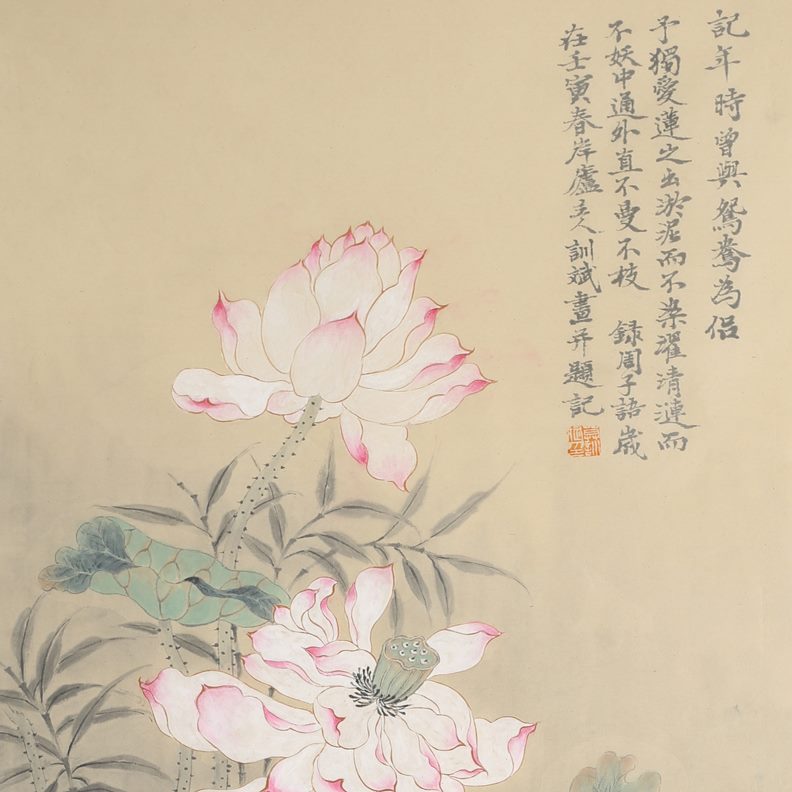 記年時曾與鴛鴦為侶
予獨愛蓮之出淤泥而不染濯清漣而
不妖中通外直不蔓不枝 録周子語歲
在壬寅春岸廬主人訓斌畫并題記